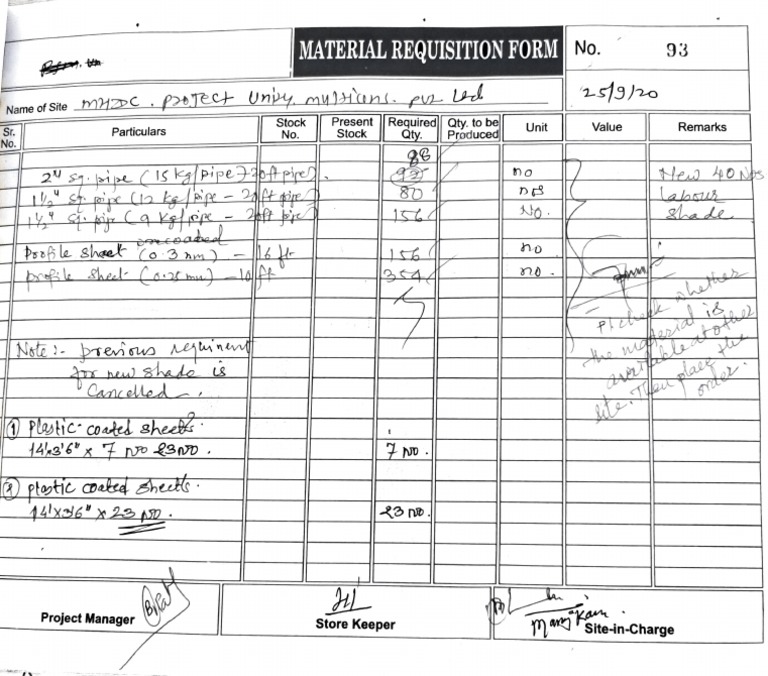 MATERIAL REQUISITION FORM
No. 93
Name of Site MHDC. Project Unity. multicons. pvt Ltd
25/9/20
Sr. No. Particulars Stock No. Present Stock Required Qty. Qty. to be Produced Unit Value Remarks
88
2" sq. pipe (15 kg/pipe - 20ft pipe). no New 40 Nos
1½" sq. pipe (12 kg/pipe - 20ft pipe) 80 nos Labour
1½" sq. pipe (9 kg/pipe - 20ft pipe) 156 No. Shade
uncoated
Profile Sheet (0.3 mm) - 16 ft 156 no
profile sheet (0.25 mm) - 10 ft 354 no.
Pl check whether
the material is
available at other
site. Then place the
order.
Note :- previous requirment
for new shade is
Cancelled.
① Plastic coated sheets.
14'x3'6" x 7 NO 23NO. 7 NO.
② plastic coated sheets.
14'x3'6" x 23 NO. 23 NO.
Project Manager
Store Keeper
Site-in-Charge